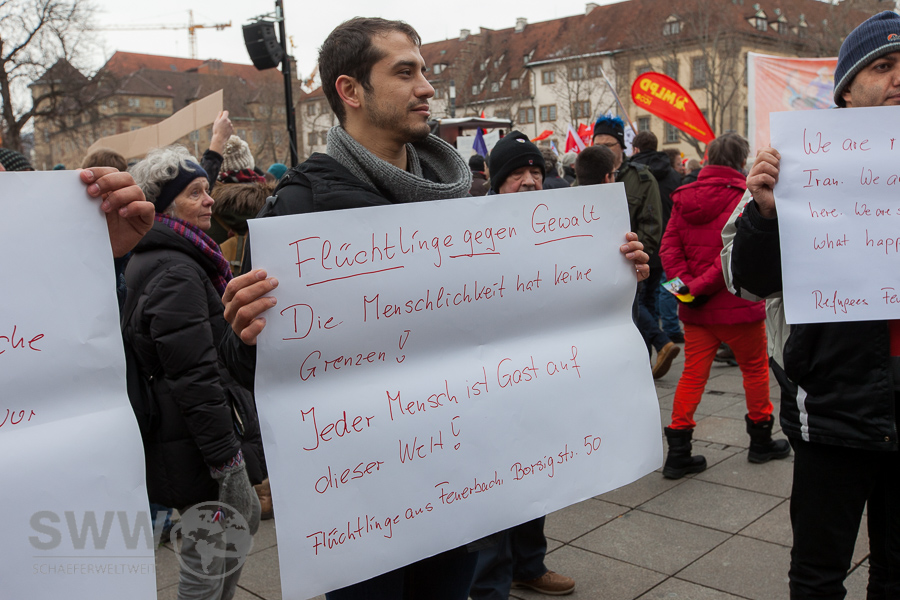 Flüchtlinge gegen Gewalt
Die Menschlichkeit hat keine
Grenzen!
Jeder Mensch ist Gast auf
dieser Welt!
Flüchtlinge aus Feuerbach, Borsigstr. 50
We are
Iran. We a
here. We are
what happ
Refugees Feu
MLPD
SWW
SCHAEFERWELTWEIT